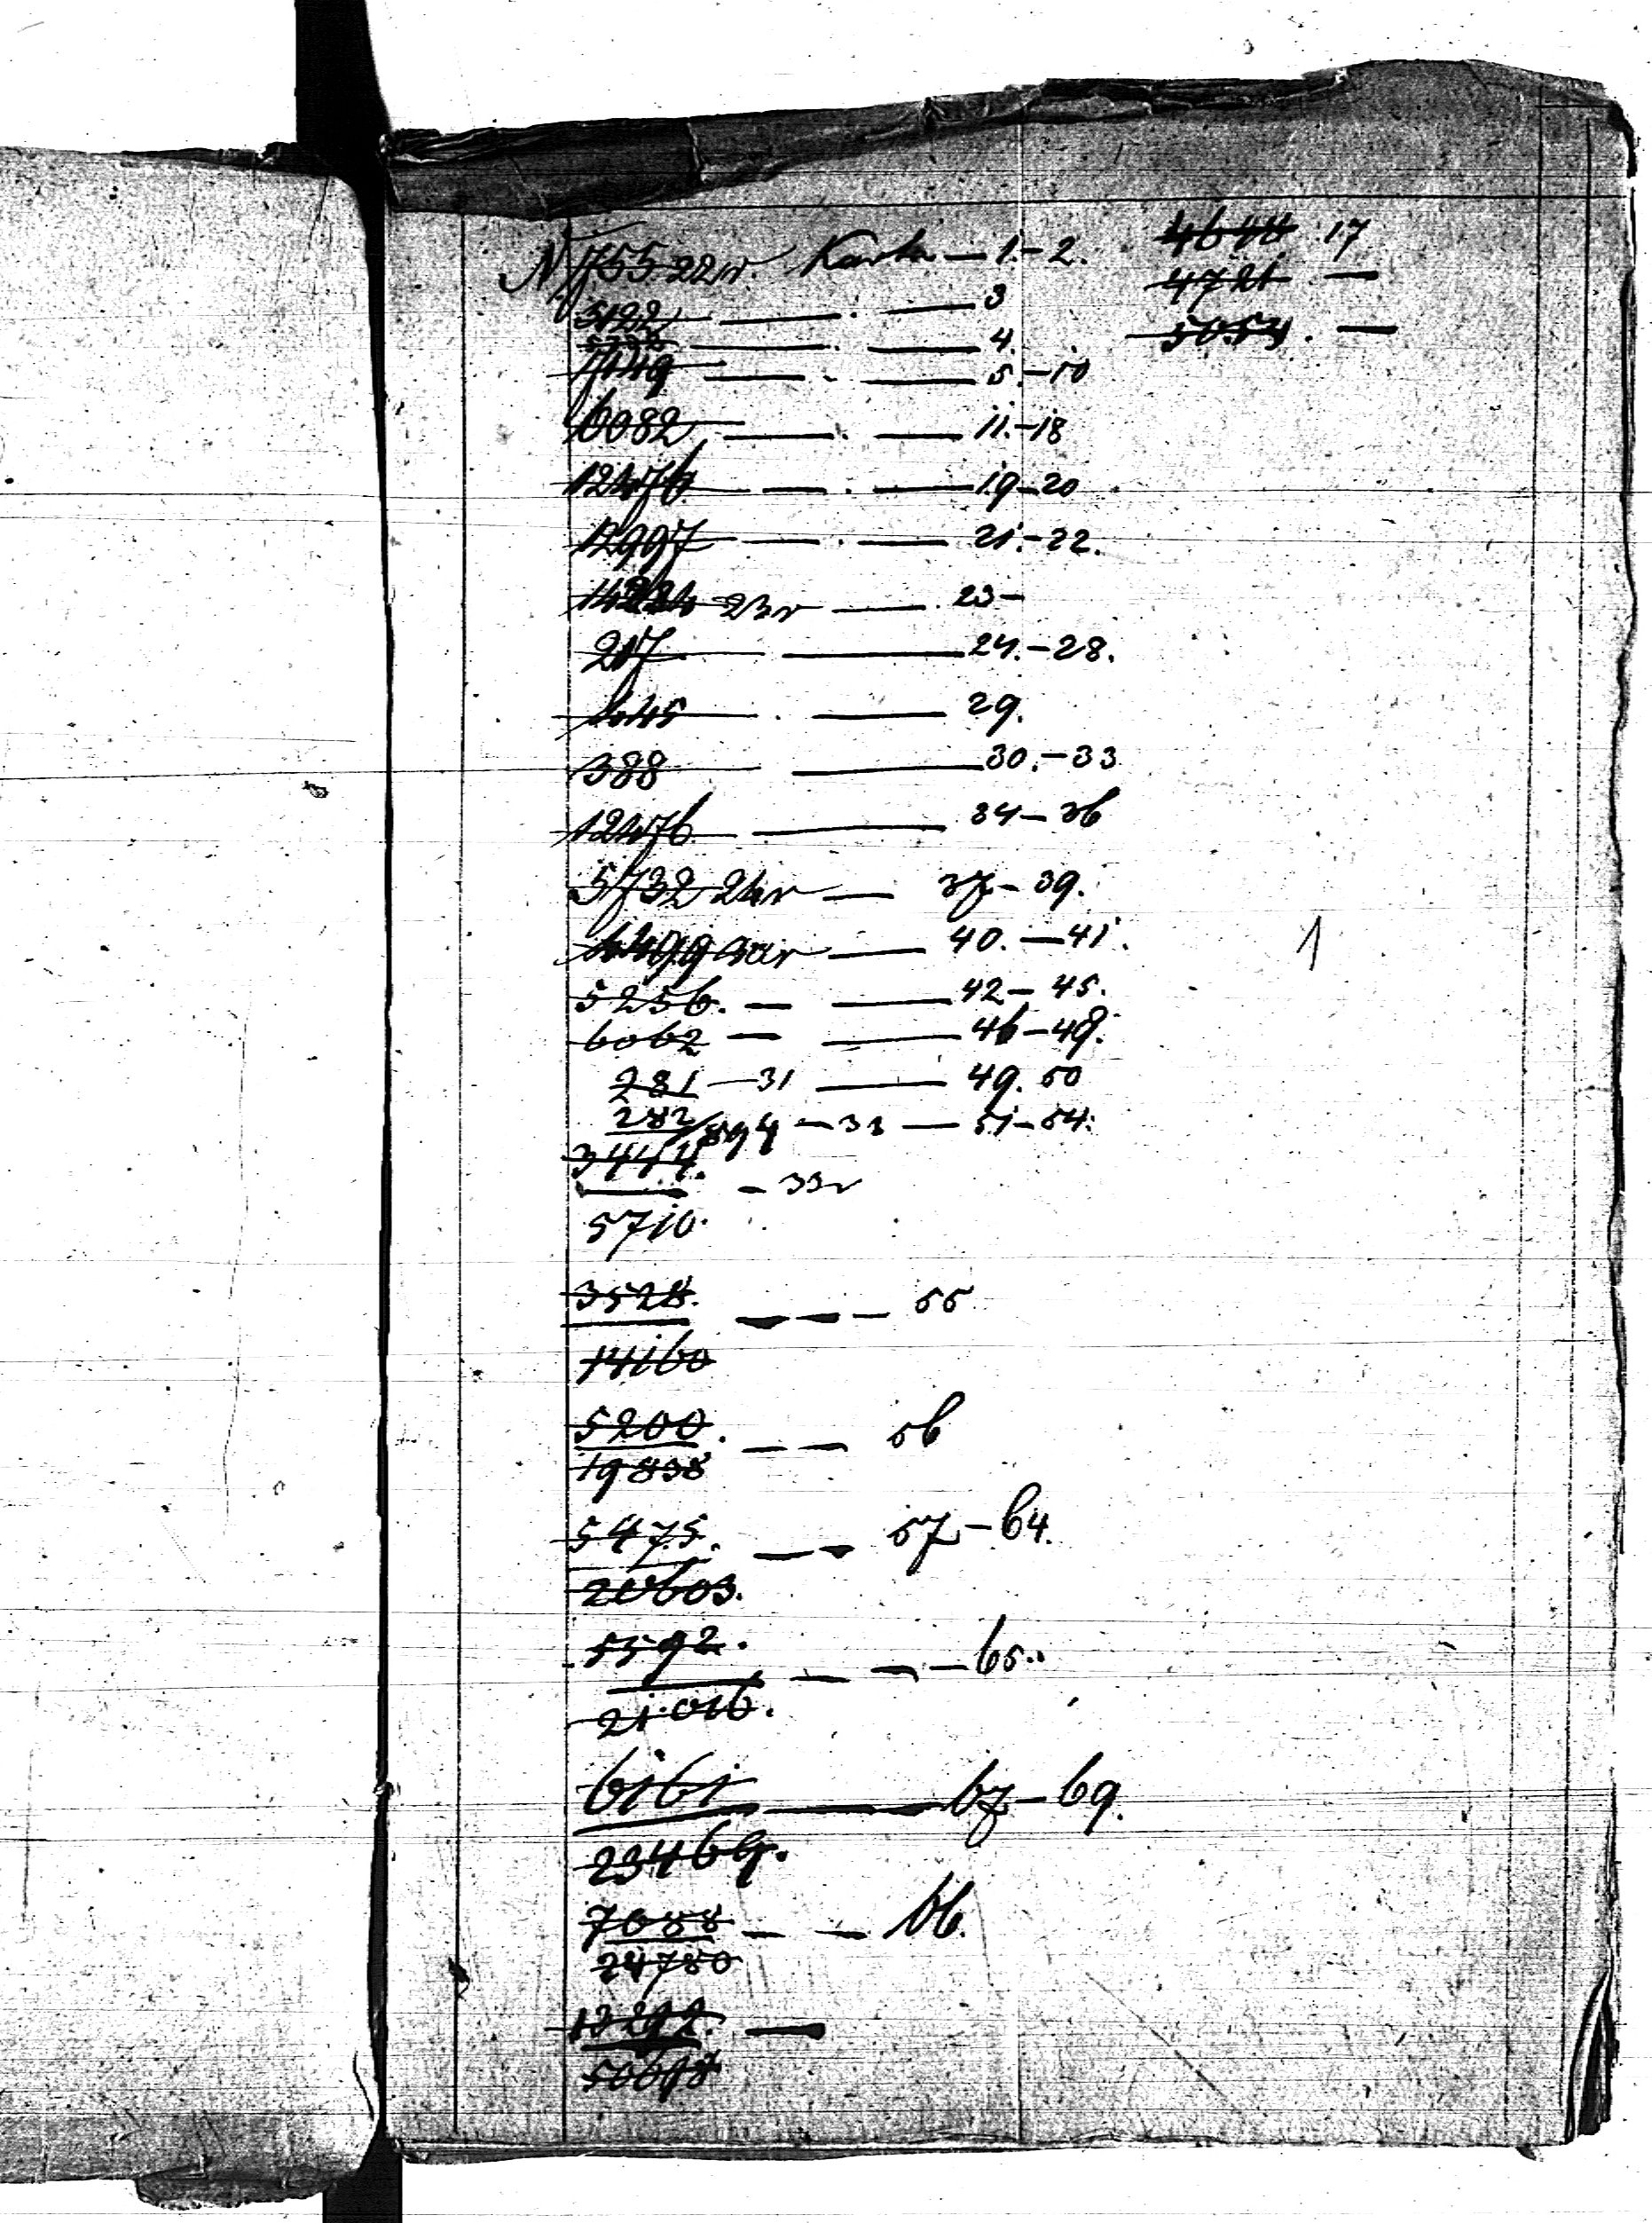 N 1755 22 r. Karta — 1.-2.
3122 — . — 3
— . — 4.
7149 — . — 5.-10
6082 — . — 11.-18
12476 — . — 19-20
12997 — . — 21.-22.
23 r — 23-
217 — 24.-28.
445 . — 29.
388 — 30.-33
12476 — 34-36
5732 24 r — 37-39.
— 40.-41.
5256. — — 42-45.
6062 — — 46-48.
281 — 31 — 49. 50
282/894 - 33 — 51-54.
3414.
- 33 r
5710.
3528. — — — 55
14160
5200. — — 56
19838
5475. — — 57-64.
20603.
5592. — — — 65.
21016.
6161 — — 67-69.
23469.
7088 — — 66.
24780
13292. —
50698
4644 17
4721 —
5054. —
1